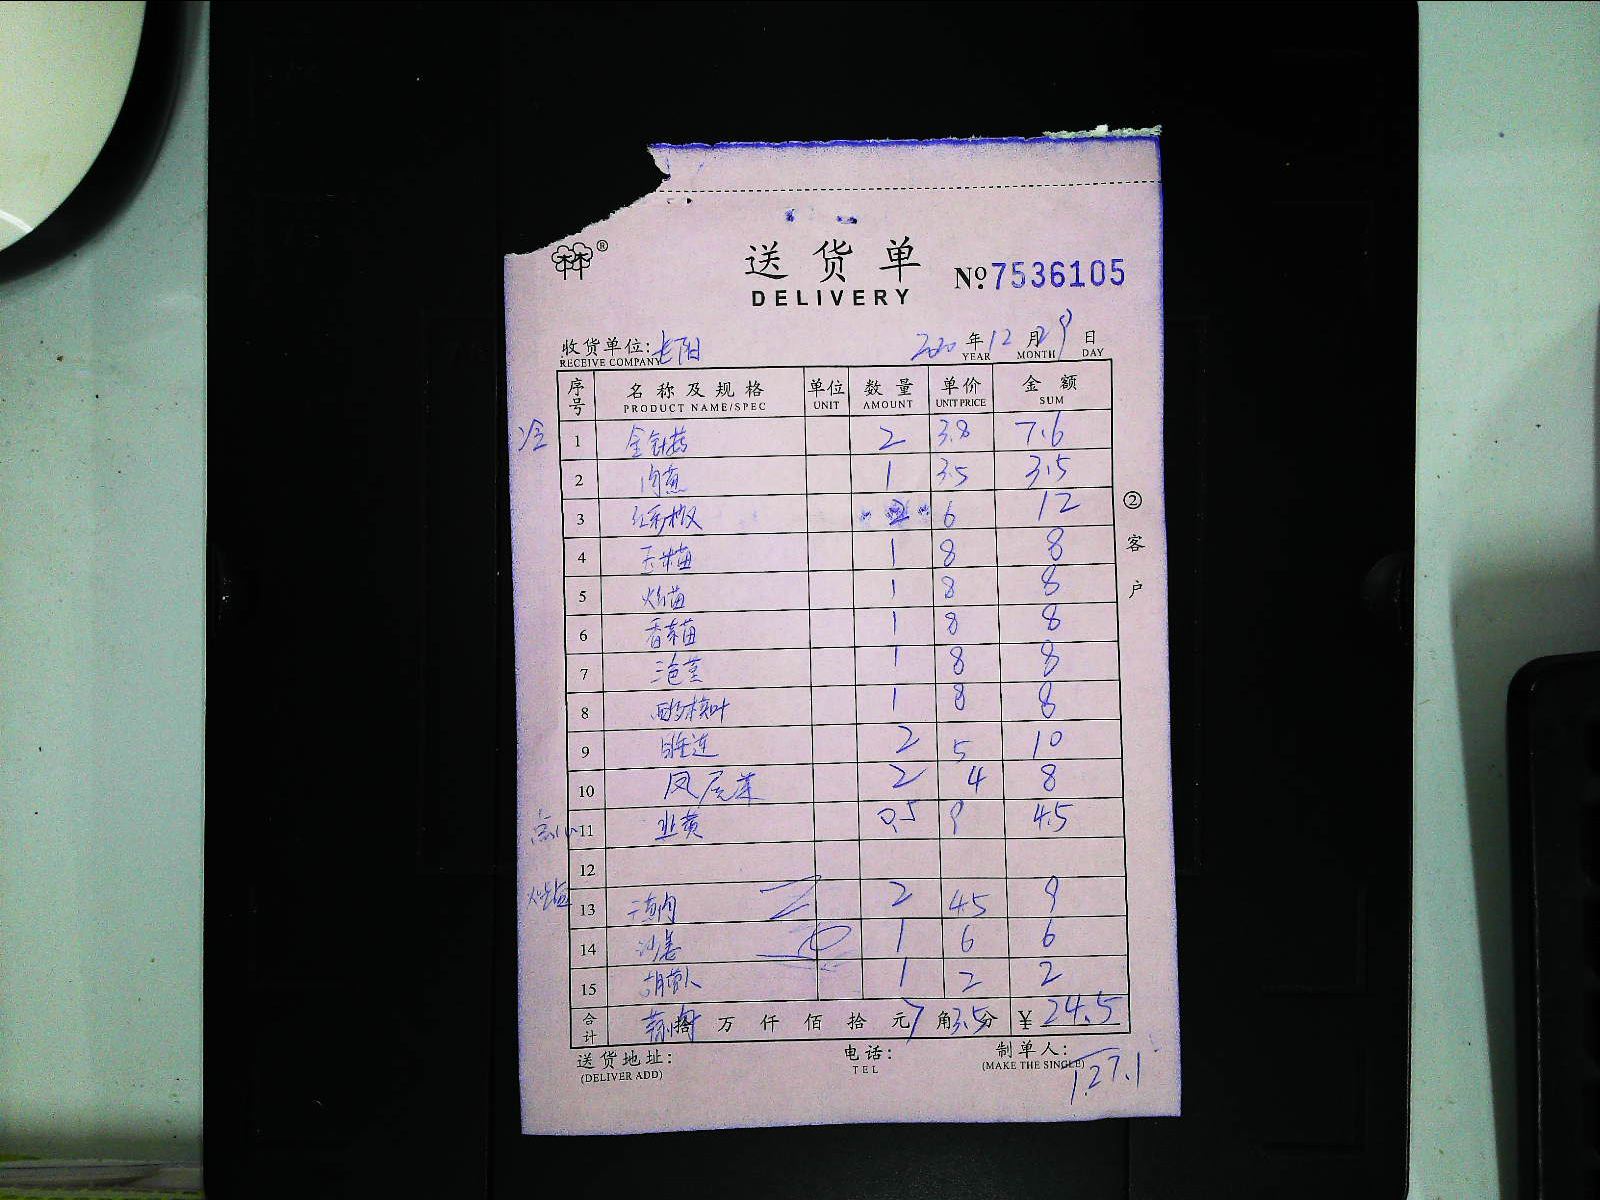 林®
送货单
DELIVERY
№7536105
收货单位: 长阳 2020年12月29日
RECEIVE COMPANY YEAR MONTH DAY
序号 名称及规格 单位 数量 单价 金额
PRODUCT NAME/SPEC UNIT AMOUNT UNIT PRICE SUM
冷 1 金针菇 2 3.8 7.6
2 肉蕉 1 3.5 3.5
3 红彩椒 2 6 12
4 玉米苗 1 8 8
5 苗 1 8 8
6 香菜苗 1 8 8
7 三色堇 1 8 8
8 叶 1 8 8
9 连 2 5 10
10 凤尾菜 2 4 8
11 韭黄 0.5 9 4.5
12
13 2 4.5 9
14 沙姜 1 6 6
15 胡萝卜 1 2 2
合计 拾 万 仟 佰 拾 元 7 角 3.5 分 ¥ 24.5
送货地址: 电话: 制单人:
(DELIVER ADD) TEL (MAKE THE SINGLE)
127.1
②客户